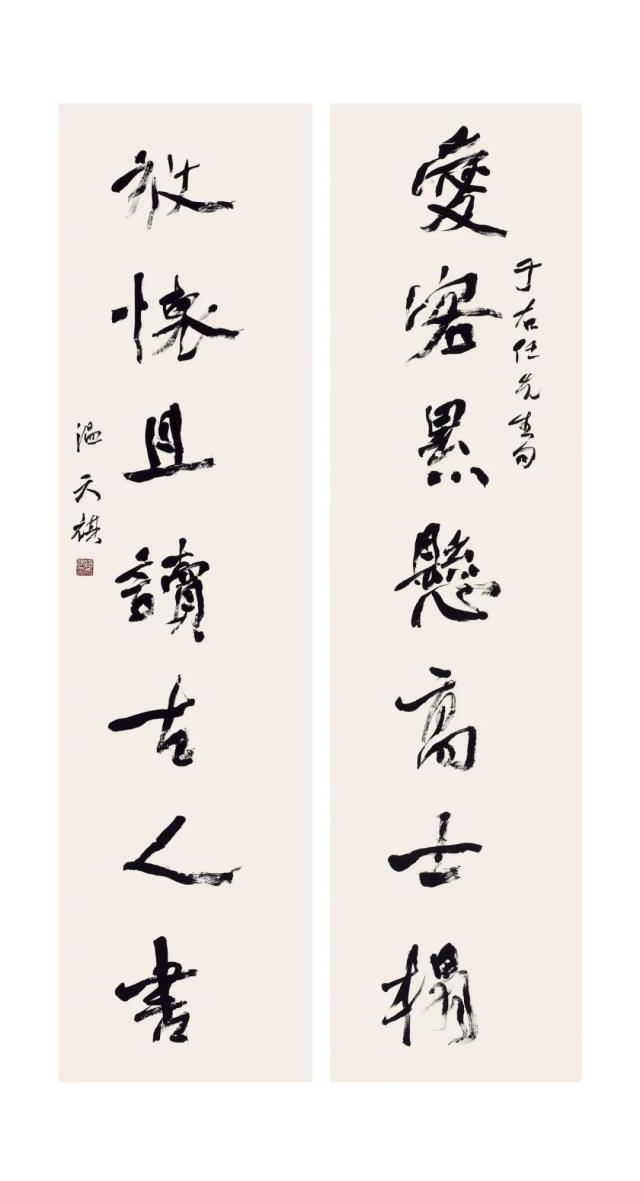 愛客累懸高士榻
于右任先生句
放懷且讀古人書
温天祺